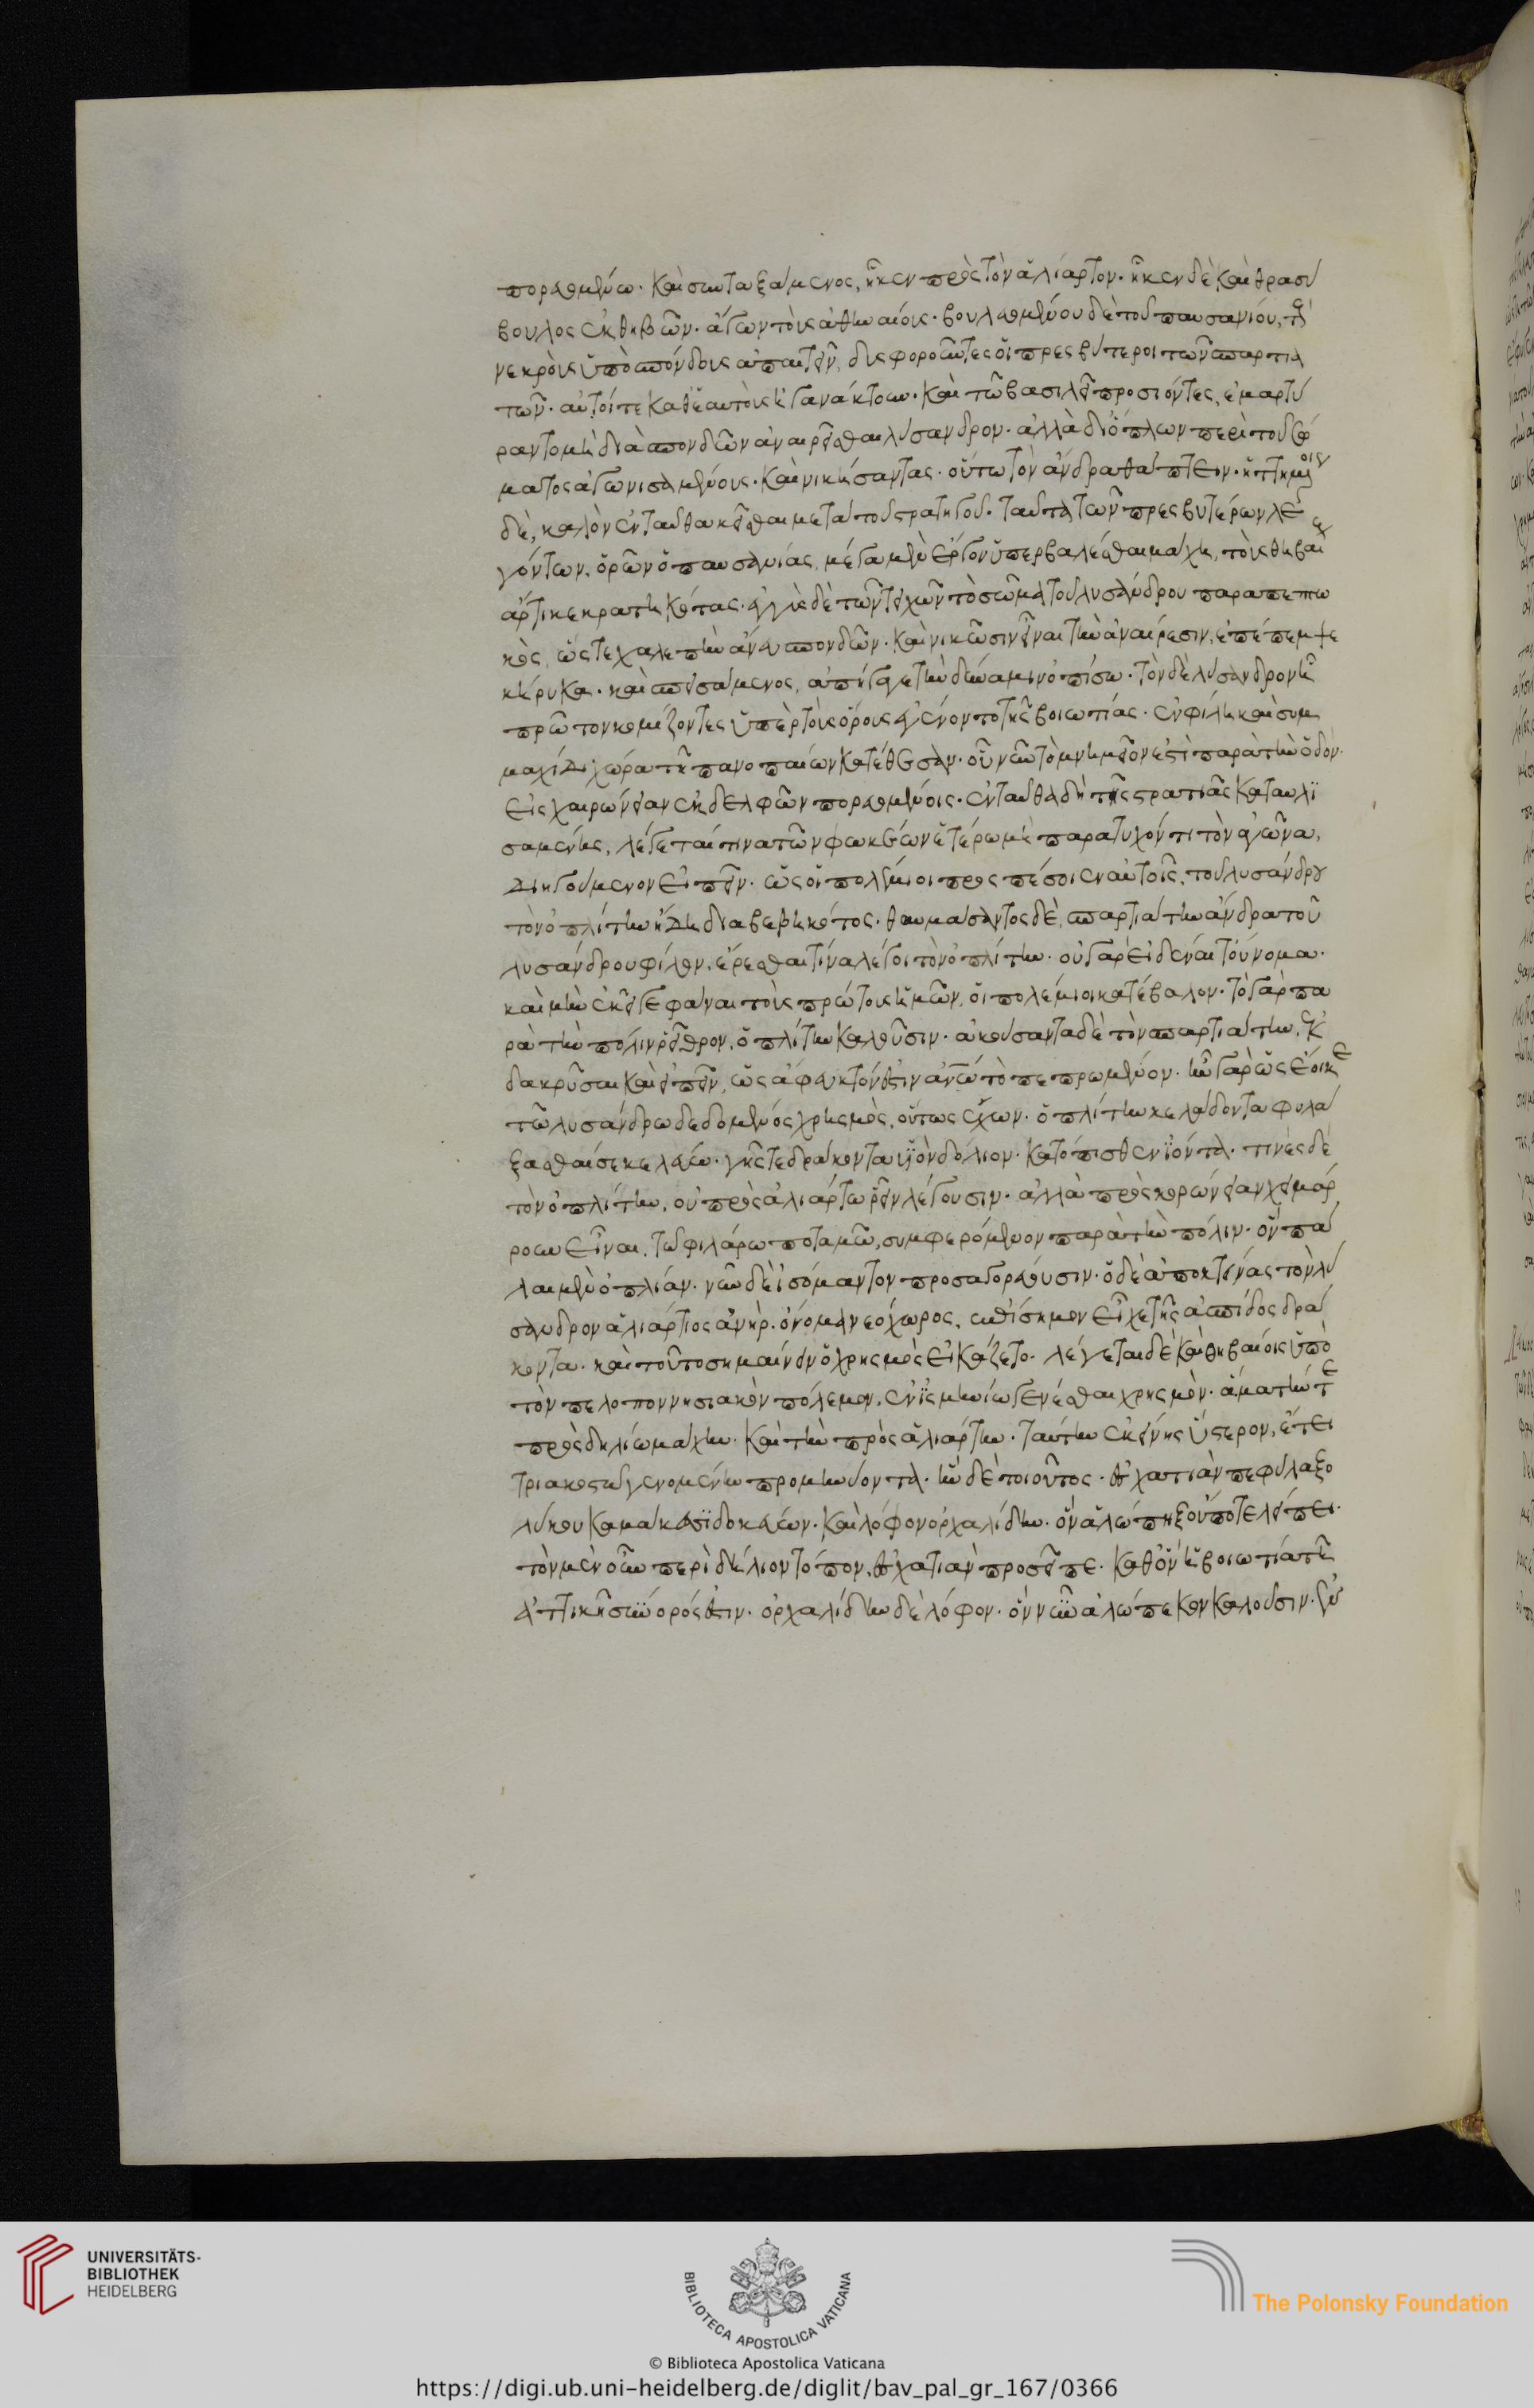 πορευομένω. καὶ συνταξάμενος, ἧκεν πρὸς τὸν ἁλίαρτον. ἧκεν δὲ καὶ θρασύ
βουλος ἐκ θηβῶν. ἄγων τοὺς ἀθηναίους. βουλευομένου δὲ τοῦ παυσανίου, τοὺς
νεκροὺς ὑποσπόνδους ἀπαιτεῖν, δυσφοροῦντες οἱ πρεσβύτεροι τῶν σπαρτια
τῶν. αὐτοί τε καθ' ἑαυτοὺς ἠγανάκτουν. καὶ τῶ βασιλεῖ προσιόντες, ἐμαρτύ
ραντο μὴ διὰ σπονδῶν ἀναιρεῖσθαι λύσανδρον. ἀλλὰ δι' ὅπλων περὶ τοῦ σώ
ματος ἀγωνισαμένους. καὶ νικήσαντας. οὕτω τὸν ἄνδρα θάπτειν. ἡττημένοις
δὲ, καλὸν ἐνταῦθα κεῖσθαι μετὰ τοῦ στρατηγοῦ. ταῦτα τῶν πρεσβυτέρων λε
γόντων. ὁρῶν ὁ παυσανίας, μέγα μὲν ἔργον ὑπερβαλέσθαι μάχη, τοὺς θηβαί
ἄρτι κεκρατηκότας. ἐγγὺς δὲ τῶν τειχῶν τὸ σῶμα τοῦ λυσάνδρου παραπεπτω
κὸς, ὥστε χαλεπὴν ἄνευ σπονδῶν. καὶ νικῶσιν εἶναι τὴν ἀναίρεσιν. ἐπέπεμψε
κήρυκα. καὶ σπεισάμενος, ἀπήγαγε τὴν δύναμιν ὀπίσω. τὸν δὲ λύσανδρον ἧ
πρῶτον κομίζοντες ὑπὲρ τοὺς ὅρους ἐγένοντο τῆς βοιωτίας. ἐν φίλη καὶ συμ
μαχίδι χώρα τῆ πανοπαίων κατέθεσαν. οὗ νῦν τὸ μνημεῖον ἐστὶ παρὰ τὴν ὁδὸν.
εἰς χαιρώνειαν ἐκ δελφῶν πορευομένοις. ἐνταῦθα δὴ τῆς στρατιᾶς καταυλι
σαμένης, λέγεται τινα τῶν φωκέων ἑτέρω μὴ παρατυχόντι τὸν ἀγῶνα,
διηγούμενον εἰπεῖν. ὡς οἱ πολέμιοι προσπέσοιεν αὐτοῖς, τοῦ λυσάνδρου
τὸν ὁπλίτην ἤδη διαβεβηκότος. θαυμάσαντος δὲ, σπαρτιάτην ἄνδρα τοῦ
λυσάνδρου φίλον, ἐρέσθαι τίνα λέγοι τὸν ὁπλίτην. οὐ γὰρ εἰδέναι τοὔνομα.
καὶ μὴν ἐκεῖ γε φάναι τοὺς πρώτους ἡμῶν, οἱ πολέμιοι κατέβαλον. τὸ γὰρ πα
ρὰ τὴν πόλιν ῥεῖθρον, ὁπλίτην καλοῦσιν. ἀκούσαντα δὲ τὸν σπαρτιάτην, ἐκ
δακρῦσαι καὶ εἰπεῖν, ὡς ἄφευκτόν ἐστιν ἀνθρώπω τὸ πεπρωμένον. ἦν γὰρ ὡς ἔοικε
τῶ λυσάνδρω δεδομένος χρησμὸς, οὕτως ἔχων. ὁπλίτην κελάδοντα φυλά
ξασθαί σε κελεύω. γῆς τε δράκονθ' υἱὸν δόλιον. κατόπισθεν ἰόντα. τινὲς δὲ
τὸν ὁπλίτην, οὐ πρὸς ἁλιάρτω ῥεῖν λέγουσιν. ἀλλὰ πρὸς κορώνειαν χειμάρ
ρουν εἶναι, τῶ φιλάρω ποταμῶ, συμφερόμενον παρὰ τὴν πόλιν. ὃν πά
λαι μὲν ὁπλίαν. νῦν δὲ ἰσόμαντον προσαγορεύουσιν. ὁ δὲ ἀποκτείνας τὸν λύ
σανδρον ἁλιάρτιος ἀνὴρ. ὄνομα νεόχωρος, ἐπίσημον εἶχε τῆς ἀσπίδος δρά
κοντα. καὶ τοῦτο σημαίνειν ὁ χρησμὸς εἰκάζετο. λέγεται δὲ καὶ θηβαίοις ὑπὸ
τὸν πελοποννησιακὸν πόλεμον, ἐν ἰσμηνίω γενέσθαι χρησμὸν. ἅμα τήν τε
πρὸς δηλίω μάχην. καὶ τὴν πρὸς ἁλιάρτην. ταύτην ἐκείνης ὕστερον, ἔτει
τριακοστῶ γενομένην προμηνύοντα. ἦν δὲ τοιοῦτος. ἐσχατιὰν πεφύλαξο
λύκου καμάκεσσι δοκεύων. καὶ λόφον ὀρχαλίδην. ὃν ἀλώπηξ οὔποτε λείπει.
τὸν μὲν οὖν περὶ δήλιον τόπον, ἐσχατιὰν προσεῖπε. καθ' ὃν ἡ βοιωτία τῆ
ἀττικῆ σύνορός ἐστιν. ὀρχαλίδην δὲ λόφον. ὃν νῦν ἀλώπεκον καλοῦσιν. ἐν
UNIVERSITÄTS-
BIBLIOTHEK
HEIDELBERG
BIBLIOTECA APOSTOLICA VATICANA
The Polonsky Foundation
© Biblioteca Apostolica Vaticana
https://digi.ub.uni-heidelberg.de/diglit/bav_pal_gr_167/0366